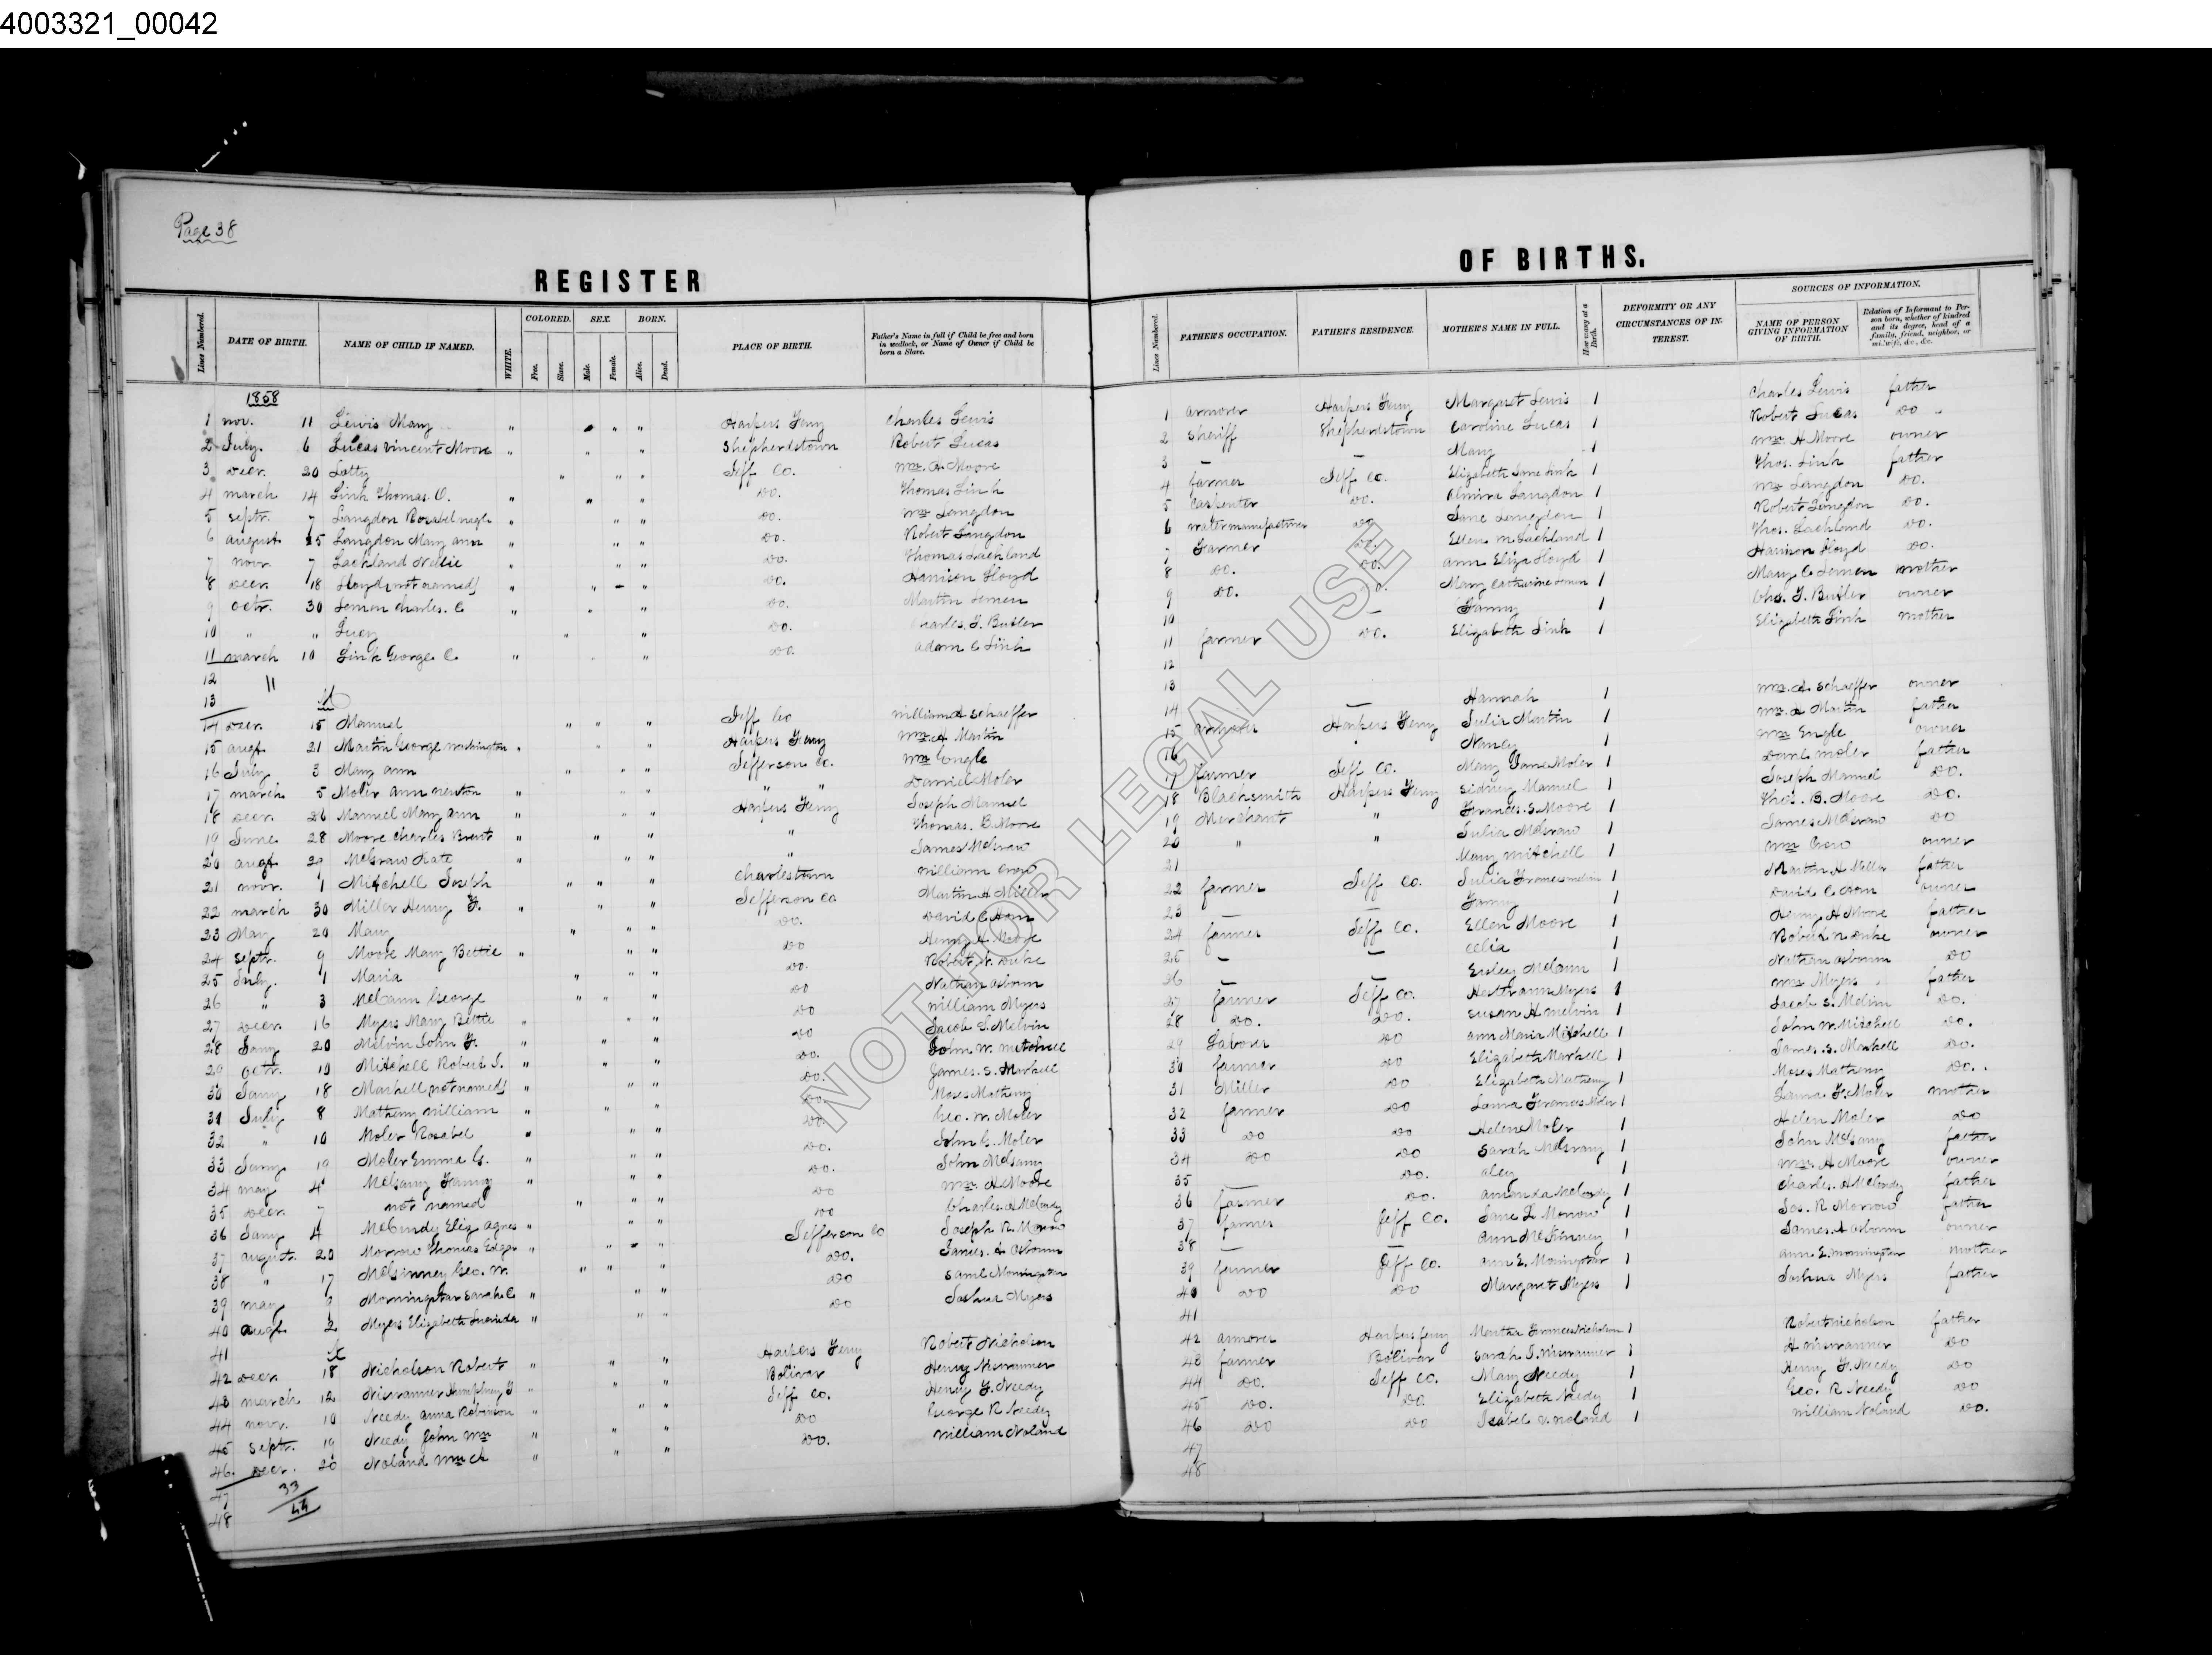 4003321_00042
Page 38
REGISTER
OF BIRTHS.
Lines Numbered. DATE OF BIRTH. NAME OF CHILD IF NAMED. WHITE. COLORED. Free. Slave. SEX. Male. Female. BORN. Alive. Dead. PLACE OF BIRTH. Father's Name in full if Child be free and born in wedlock, or Name of Owner if Child be born a Slave.
Lines Numbered. FATHER'S OCCUPATION. FATHER'S RESIDENCE. MOTHER'S NAME IN FULL. How many at a Birth. DEFORMITY OR ANY CIRCUMSTANCES OF INTEREST. SOURCES OF INFORMATION. NAME OF PERSON GIVING INFORMATION OF BIRTH. Relation of Informant to Person born, whether of kindred and its degree, head of a family, friend, neighbor, or midwife, &c., &c.
1858
1 nov. 11 Lewis Mary " " " Harpers Ferry Charles Lewis
2 July. 6 Lucas Vincent Moore " " " Shepherdstown Robert Lucas
3 Decr. 20 Letty " " " Jeff Co. Wm. H Moore
4 march 14 Link Thomas. O. " " " Do. Thomas Link
5 septr. 7 Langdon Rosabel " " " Do. Wm Langdon
6 august 25 Langdon Mary ann " " " Do. Robert Langdon
7 novr. 7 Lackland Nellie " " " Do. Thomas Lackland
8 Decr. 18 Lloyd (not named) " " " Do. Harrison Lloyd
9 octr. 30 Lemon Charles. C " " " Do. Martin Lemen
10 " " Lucy " " Do. Charles. T. Butler
11 march 10 Link George C. " " Do. Adam C Link
12 "
13
14 Decr. 15 Manuel " " " Jeff Co William A Schaeffer
15 augt. 21 Martin George Washington " " " Harpers Ferry Wm. A Martin
16 July 3 Mary ann " " " Jefferson Co. Wm Engle
17 march 5 Moler ann newton " " " " " Daniel Moler
18 Decr. Manuel Mary ann " " " Harpers Ferry Joseph Manuel
19 June 28 Moore Charles Brent " " " " Thomas. B. Moore
20 augt. 29 McGraw Kate " " " " James McGraw
21 novr. 1 Mitchell Joseph " " " Charlestown William Crow
22 march 30 Miller Henry F. " " " Jefferson Co Martin H Miller
23 May 20 Mary " " " Do. David C Ham
24 septr. 9 Moore Mary Bettie " " " Do Henry H. Moore
25 July. 1 Maria " " " Do. Robert N. Duke
26 " 3 McCann George " " " Do Nathan Osborn
27 Decr. 16 Myers Mary Bettie " " " Do William Myers
28 Jany 20 Melvin John F. " " " Do Jacob S. Melvin
29 octr. 19 Mitchell Robert J. " " " Do. John W. Mitchell
30 Jany 18 Markell (not named) " " " Do. James. S. Markell
31 July 8 Matheny William " " " Do. Moses Matheny
32 " 10 Moler Rosabel " " " Do. Geo. W. Moler
33 Jany 19 Moler Emma G. " " " Do. John G. Moler
34 may 4 McGarry Fanny " " " Do. John McGarry
35 Decr. 7 not named " " " Do Wm. H Moore
36 Jany 4 McCurdy Eliz Agnes " " " Do Charles. A McCurdy
37 august. 20 Morrow Thomas Edgar " " " Jefferson Co Joseph R. Morrow
38 " 17 McKinney Geo. W. " " " Do. James. A Osbourn
39 may 9 Morningstar Sarah C " " " Do Saml Morningstar
40 augt. 2 Myers Elizabeth Lucinda " " " Do Joshua Myers
41
42 Decr. 18 Nicholson Robert " " " Harpers Ferry Robert Nicholson
43 march 12 Niswanner Humphrey F " " " Bolivar Henry Niswanner
44 novr. 10 Needy anna Robinson " " " Jeff Co. Henry F. Needy
45 septr. 19 Needy John Wm " " " Do George R Needy
46 Decr. 20 Noland Wm Ch " " " Do. William Noland
47
48
33
44
1 armorer Harpers Ferry Margaret Lewis 1 Charles Lewis father
2 Sheriff Shepherdstown Caroline Lucas 1 Robert Lucas Do
3 — — Mary 1 Wm. H Moore owner
4 farmer Jeff Co. Elizabeth Jane Link 1 Thos. Link father
5 Carpenter Do. Almira Langdon 1 Wm Langdon Do.
6 Do. Jane Langdon 1 Robert Langdon Do.
7 Farmer Do. Ellen M. Lackland 1 Thos. Lackland Do.
8 Do. Do. Ann Eliza Lloyd 1 Harrison Lloyd Do.
9 Do. Mary Catharine Lemen 1 Mary C Lemen mother
10 — Fanny 1 Chs. T. Butler owner
11 farmer Do. Elizabeth Link 1 Elizabeth Link mother
12
13
14 — Hannah 1 Wm. A. Schaeffer owner
15 armorer Harpers Ferry Julia Martin 1 Wm. A Martin father
16 Nancy 1 Wm Engle owner
17 farmer Jeff Co. Mary Jane Moler 1 Danl. Moler father
18 Blacksmith Harpers Ferry Sidney Manuel 1 Joseph Manuel Do.
19 Merchant " Frances. S. Moore 1 Thos. B. Moore Do.
20 " " Julia McGraw 1 James McGraw Do
21 Mary Mitchell 1 Wm Crow owner
22 farmer Jeff Co. Julia 1 Martin H Miller father
23 — — Fanny 1 David C Ham owner
24 farmer Jeff Co. Ellen Moore 1 Henry H Moore father
25 — — Celia 1 Robert N Duke owner
26 — — McCann 1 Nathan Osborn Do
27 farmer Jeff Co. Hester ann Myers 1 Wm Myers father
28 Do. Do. Susan H Melvin 1 Jacob S. Melvin Do.
29 Laborer Do ann Maria Mitchell 1 John W. Mitchell Do.
30 farmer Do Elizabeth Markell 1 James. S. Markell Do.
31 Miller Do Elizabeth Matheny 1 Moses Matheny Do.
32 farmer Do Laura Frances Moler 1 Laura F. Moler mother
33 Do Do Helen Moler 1 Helen Moler Do
34 Do Do Sarah McGarry 1 John McGarry father
35 — Do. Alcy 1 Wm. H Moore owner
36 farmer Do. Amanda McCurdy 1 Charles. A McCurdy father
37 farmer Jeff Co. Jane L. Morrow 1 Jos. R. Morrow father
38 — — Ann McKinney 1 James. A Osbourn owner
39 farmer Jeff Co. Ann E. Morningstar 1 Ann E. Morningstar mother
40 Do Do Margaret Myers 1 Joshua Myers father
41
42 armorer Harpers ferry Martha Frances Nicholson 1 Robert Nicholson father
43 farmer Bolivar Sarah J. Niswanner 1 H Niswanner Do
44 Do. Jeff Co. Mary Needy 1 Henry F. Needy Do
45 Do. Do. Elizabeth Needy 1 Geo. R Needy Do
46 Do Do Isabel V. Noland 1 William Noland Do.
47
48
NOT FOR LEGAL USE